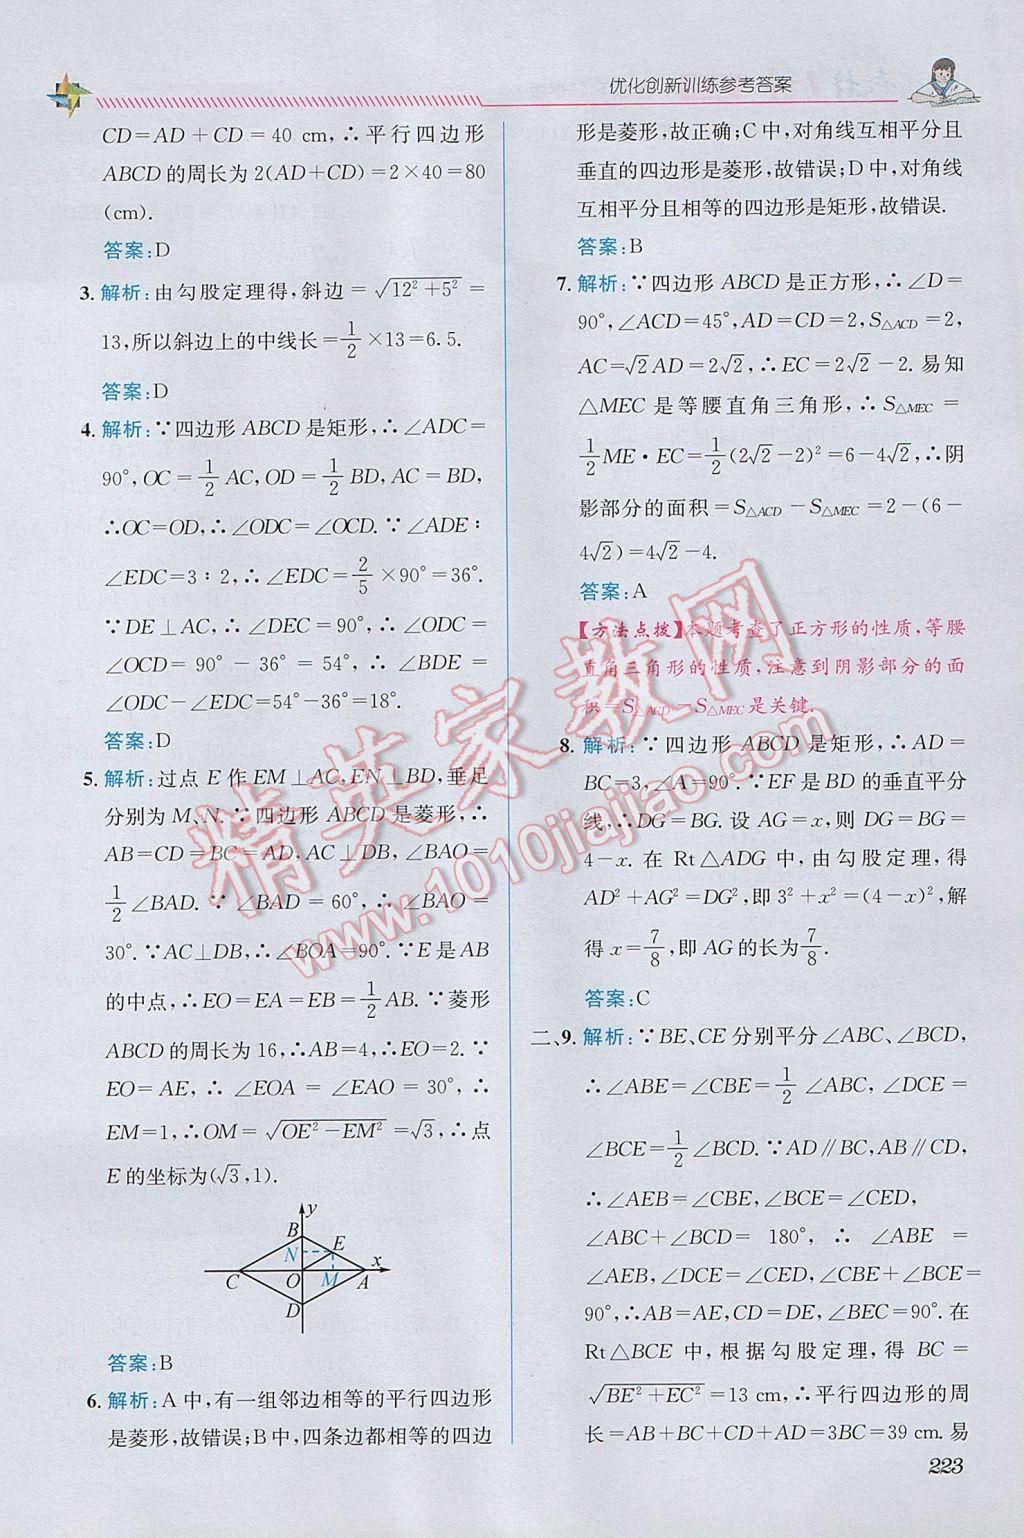 优化创新训练参考答案
CD=AD+CD=40 cm,∴平行四边形
ABCD的周长为2(AD+CD)=2×40=80
(cm).
答案:D
3. 解析:由勾股定理得,斜边=√(12²+5²)=
13,所以斜边上的中线长=1/2×13=6.5.
答案:D
4. 解析:∵四边形ABCD是矩形,∴∠ADC=
90°,OC=1/2 AC,OD=1/2 BD,AC=BD,
∴OC=OD,∴∠ODC=∠OCD.∵∠ADE∶
∠EDC=3∶2,∴∠EDC=2/5×90°=36°.
∵DE⊥AC,∴∠DEC=90°,∴∠
OCD=90°-36°=54°,∴∠BDE=
∠ODC-∠EDC=54°-36°=18°.
答案:D
5. 解析:过点E作EM⊥AC,EN⊥BD,垂足
分别为M、N.∵四边形ABCD是菱形,∴
AB=CD=BC=AD,AC⊥DB,∠BAO=
1/2∠BAD.∵∠BAD=60°,∴∠BAO=
30°.∵AC⊥DB,∴∠BOA=90°.∵E是AB
的中点,∴EO=EA=EB=1/2 AB.∵菱形
ABCD的周长为16,∴AB=4,∴EO=2.∵
EO=AE,∴∠EOA=∠EAO=30°,∴
EM=1,∴OM=√(OE²-EM²)=√3,∴点
E的坐标为(√3,1).
y
B
N
E
x
C
O
M
A
D
答案:B
6. 解析:A中,有一组邻边相等的平行四边形
是菱形,故错误;B中,四条边都相等的四边
形是菱形,故正确;C中,对角线互相平分且
垂直的四边形是菱形,故错误;D中,对角线
互相平分且相等的四边形是矩形,故错误.
答案:B
7. 解析:∵四边形ABCD是正方形,∴∠D=
90°,∠ACD=45°,AD=CD=2,S△ACD=2,
AC=√2AD=2√2,∴EC=2√2-2.易知
△MEC是等腰直角三角形,∴S△MEC=
1/2 ME·EC=1/2(2√2-2)²=6-4√2,∴阴
影部分的面积=S△ACD-S△MEC=2-(6-
4√2)=4√2-4.
答案:A
【方法点拨】本题考查了正方形的性质,等腰
直角三角形的性质,注意到阴影部分的面
积=S△ACD-S△MEC是关键.
8. 解析:∵四边形ABCD是矩形,∴AD=
BC=3,∠A=90°.∵EF是BD的垂直平分
线,∴DG=BG.设AG=x,则DG=BG=
4-x.在Rt△ADG中,由勾股定理,得
AD²+AG²=DG²,即3²+x²=(4-x)²,解
得x=7/8,即AG的长为7/8.
答案:C
二、9. 解析:∵BE、CE分别平分∠ABC、∠BCD,
∴∠ABE=∠CBE=1/2∠ABC,∠DCE=
∠BCE=1/2∠BCD.∵AD∥BC,AB∥CD,
∴∠AEB=∠CBE,∠BCE=∠CED,
∠ABC+∠BCD=180°,∴∠ABE=
∠AEB,∠DCE=∠CED,∠CBE+∠BCE=
90°,∴AB=AE,CD=DE,∠BEC=90°.在
Rt△BCE中,根据勾股定理,得BC=
√(BE²+EC²)=13 cm,∴平行四边形的周
长=AB+BC+CD+AD=3BC=39 cm.易
223
精英家教网
www.1010jiajiao.com